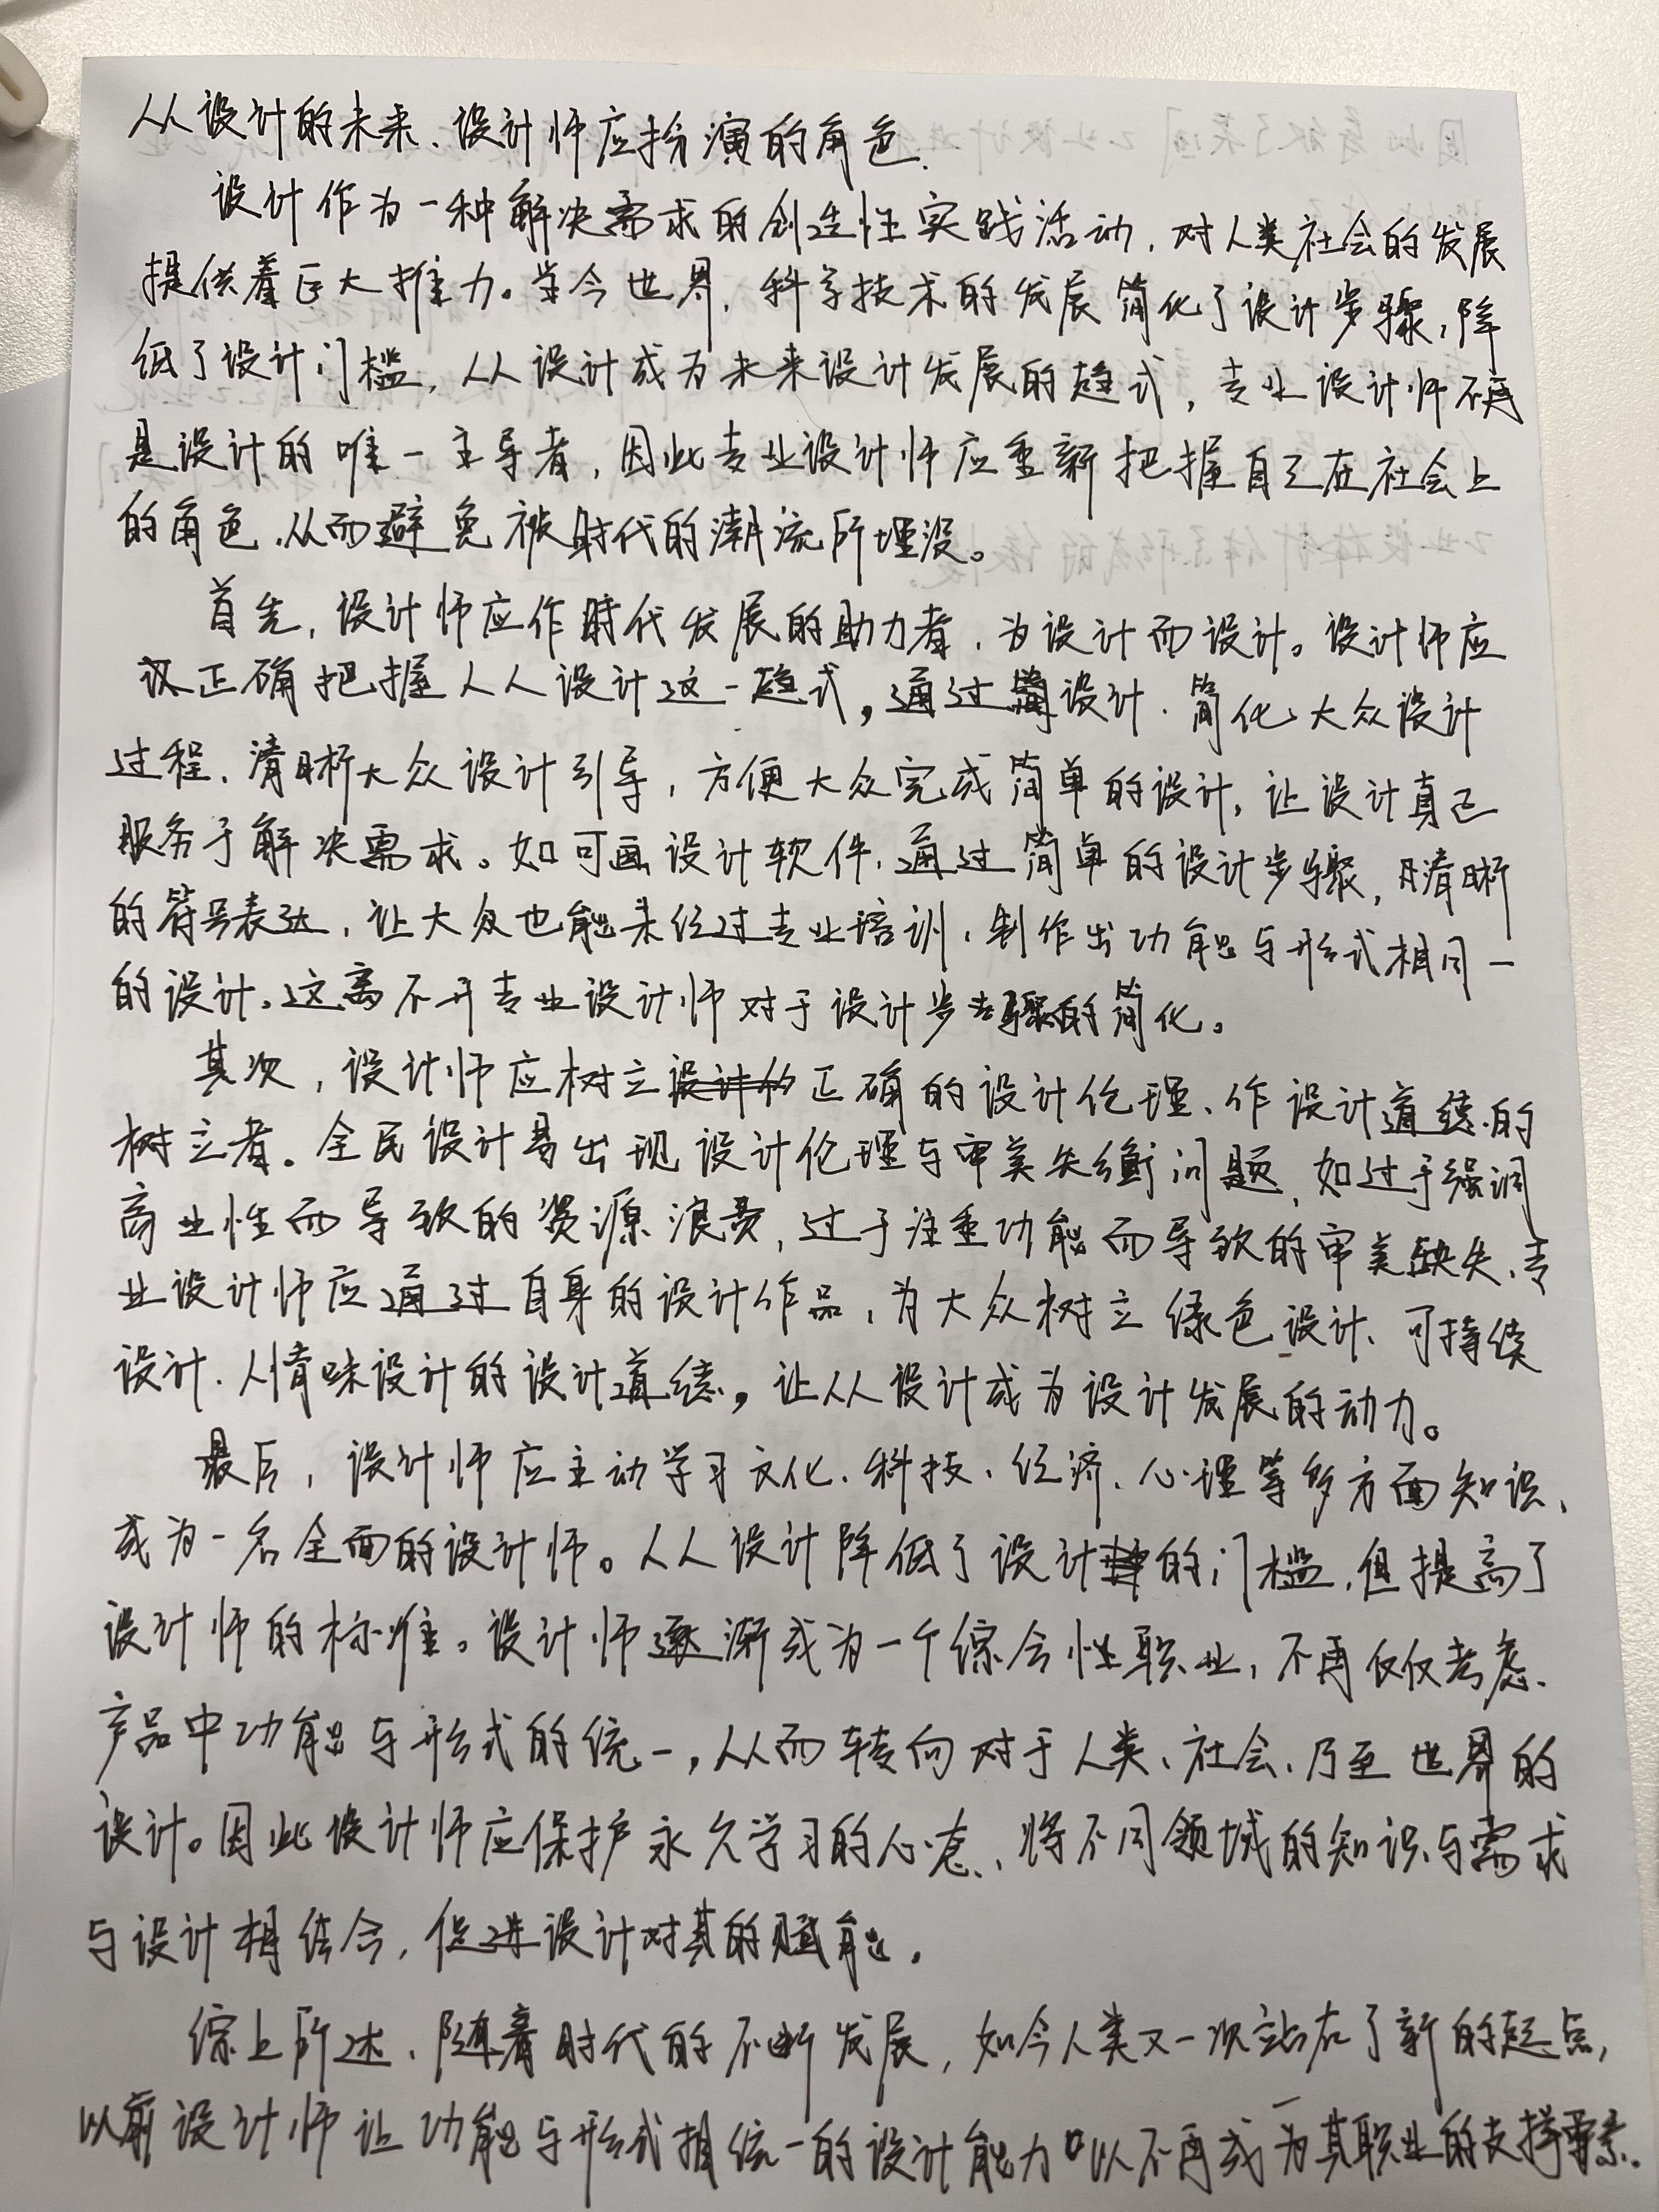 从设计的未来、设计师应扮演的角色.
设计作为一种解决需求的创造性实践活动，对人类社会的发展
提供着巨大推力。当今世界，科学技术的发展简化了设计步骤，降
低了设计门槛，人人设计成为未来设计发展的趋式，专业设计师不再
是设计的唯一主导者，因此专业设计师应重新把握自己在社会上
的角色，从而避免被时代的潮流所埋没。
首先，设计师应作时代发展的助力者，为设计而设计。设计师应
正确把握人人设计这一趋式，通过简设计、简化大众设计
过程、清晰大众设计引导，方便大众完成简单的设计，让设计真正
服务于解决需求。如可画设计软件，通过简单的设计步骤，清晰
的符号表达，让大众也能未经过专业培训，制作出功能与形式相同一
的设计。这离不开专业设计师对于设计步骤的简化。
其次，设计师应树立正确的设计伦理、作设计道德的
树立者。全民设计易出现设计伦理与审美失衡问题，如过于强调
商业性而导致的资源浪费，过于注重功能而导致的审美缺失、专
业设计师应通过自身的设计作品，为大众树立绿色设计、可持续
设计、人情味设计的设计道德，让人人设计成为设计发展的动力。
最后，设计师应主动学习文化、科技、经济、心理等多方面知识、
成为一名全面的设计师。人人设计降低了设计的门槛，但提高了
设计师的标准。设计师逐渐成为一个综合性职业，不再仅仅考虑
产品中功能与形式的统一，从而转向对于人类、社会、乃至世界的
设计。因此设计师应保护永久学习的心态、将不同领域的知识与需求
与设计相结合，促进设计对其的赋能。
综上所述、随着时代的不断发展，如今人类又一次站在了新的起点，
以前设计师让功能与形式相统一的设计能力以不再成为其职业的支撑要素.